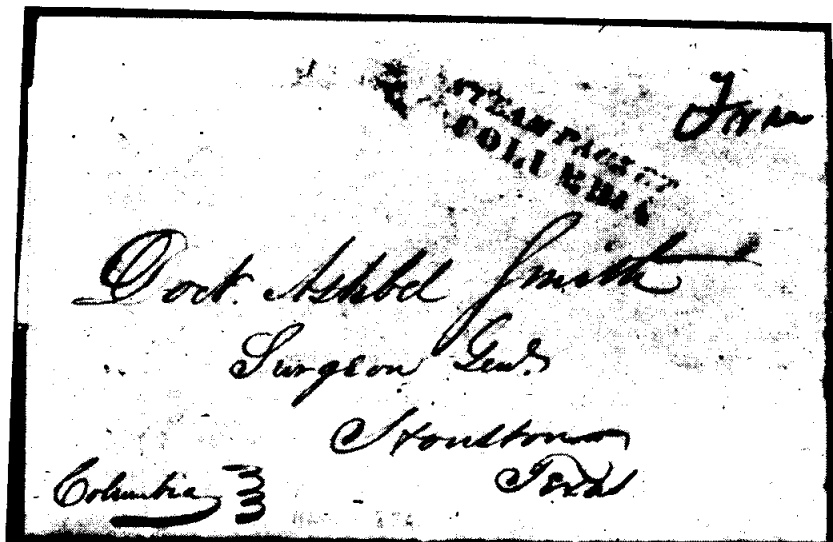 STEAM PACKET
COLUMBIA
Doct. Ashbel Smith
Surgeon Genl.
Houston
Texas
Columbia